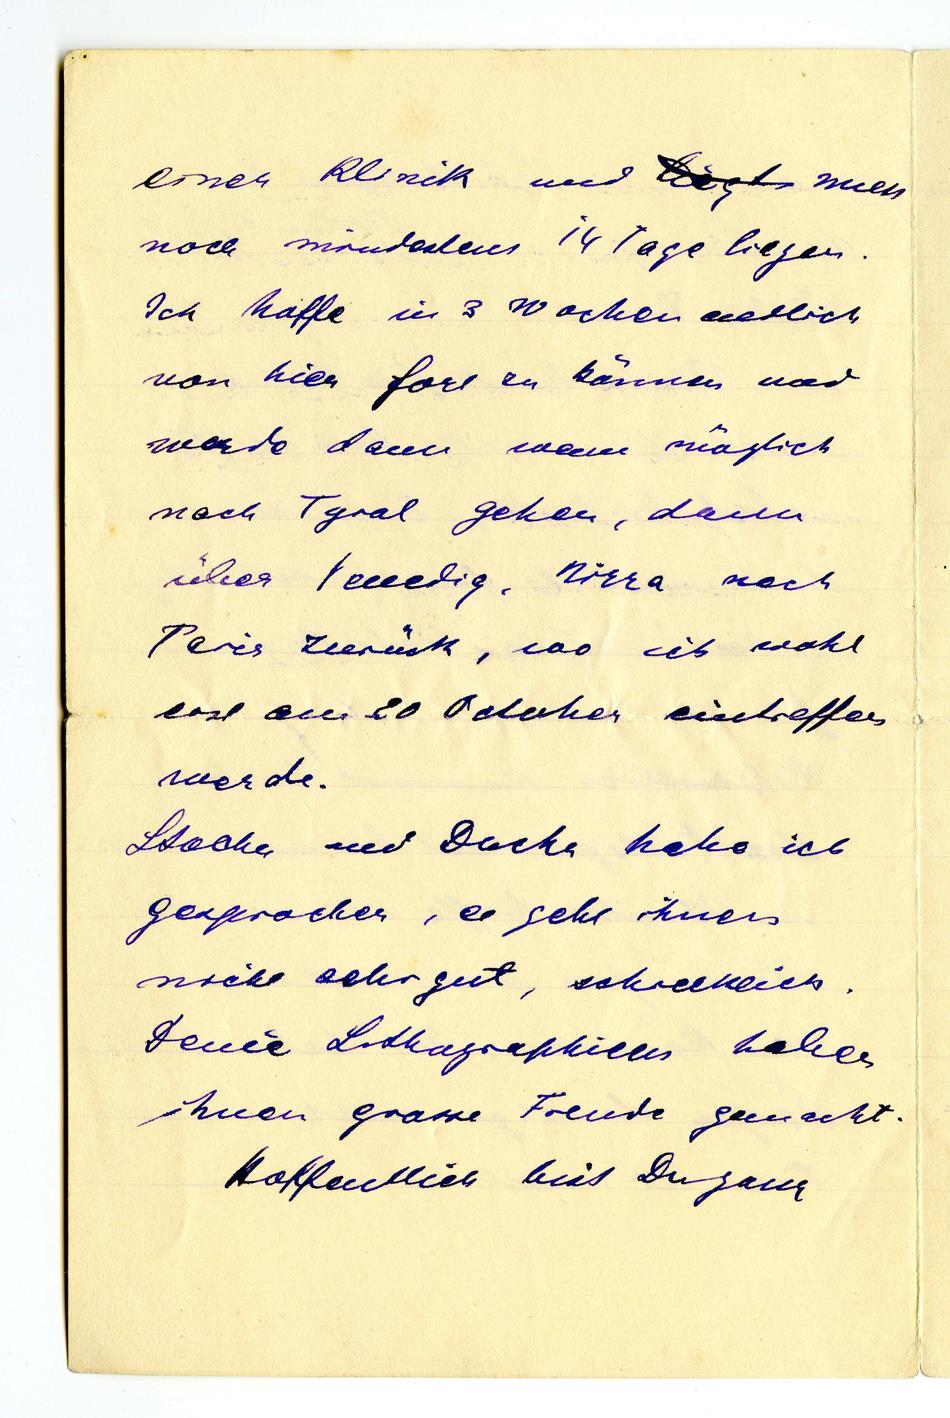 einer Klinik und liegt muss
noch mindestens 14 Tage liegen.
Ich hoffe in 3 Wochen endlich
von hier fort zu können und
werde dann wenn möglich
nach Tyrol gehen, dann
über Venedig, Nizza nach
Paris zurück, wo ich wohl
erst am 20 October eintreffen
werde.
und Ducha habe ich
gesprochen, es geht ihnen
nicht sehr gut, schrecklich.
Deine Lithographieen haben
ihnen grosse Freude gemacht.
Hoffentlich bist Du ganz